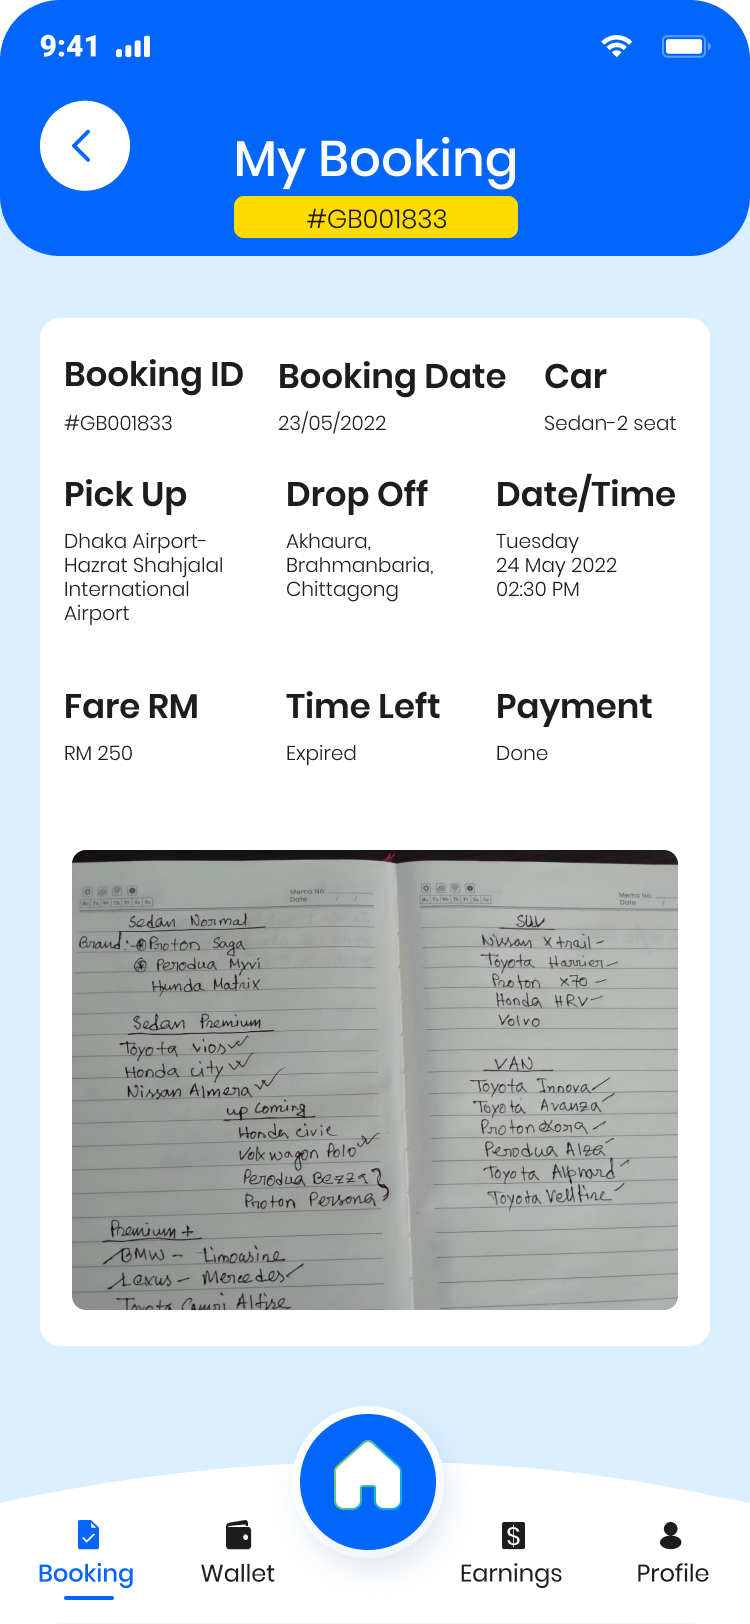 9:41
My Booking
#GB001833
Booking ID
#GB001833
Booking Date
23/05/2022
Car
Sedan-2 seat
Pick Up
Dhaka Airport-
Hazrat Shahjalal
International
Airport
Drop Off
Akhaura,
Brahmanbaria,
Chittagong
Date/Time
Tuesday
24 May 2022
02:30 PM
Fare RM
RM 250
Time Left
Expired
Payment
Done
Memo No.
Date / /
Mo Tu We Th Fr Sa Su
Sedan Normal
Brand: Proton Saga
Perodua Myvi
Hunda Matrix
Sedan Premium
Toyota vios
Honda city
Nissan Almera
up coming
Honda civic
Volxwagon Polo
Perodua Bezza
Proton Persona
Premium +
BMW - Limousine
Lexus - Mercedes
Toyota Camri Alfire
Memo No.
Date /
Mo Tu We Th Fr Sa Su
SUV
Nissan X trail -
Toyota Harrier -
Proton X70 -
Honda HRV -
Volvo
VAN
Toyota Innova
Toyota Avanza
Proton Exora
Perodua Alza
Toyota Alphard
Toyota Vellfire
Booking
Wallet
Earnings
Profile